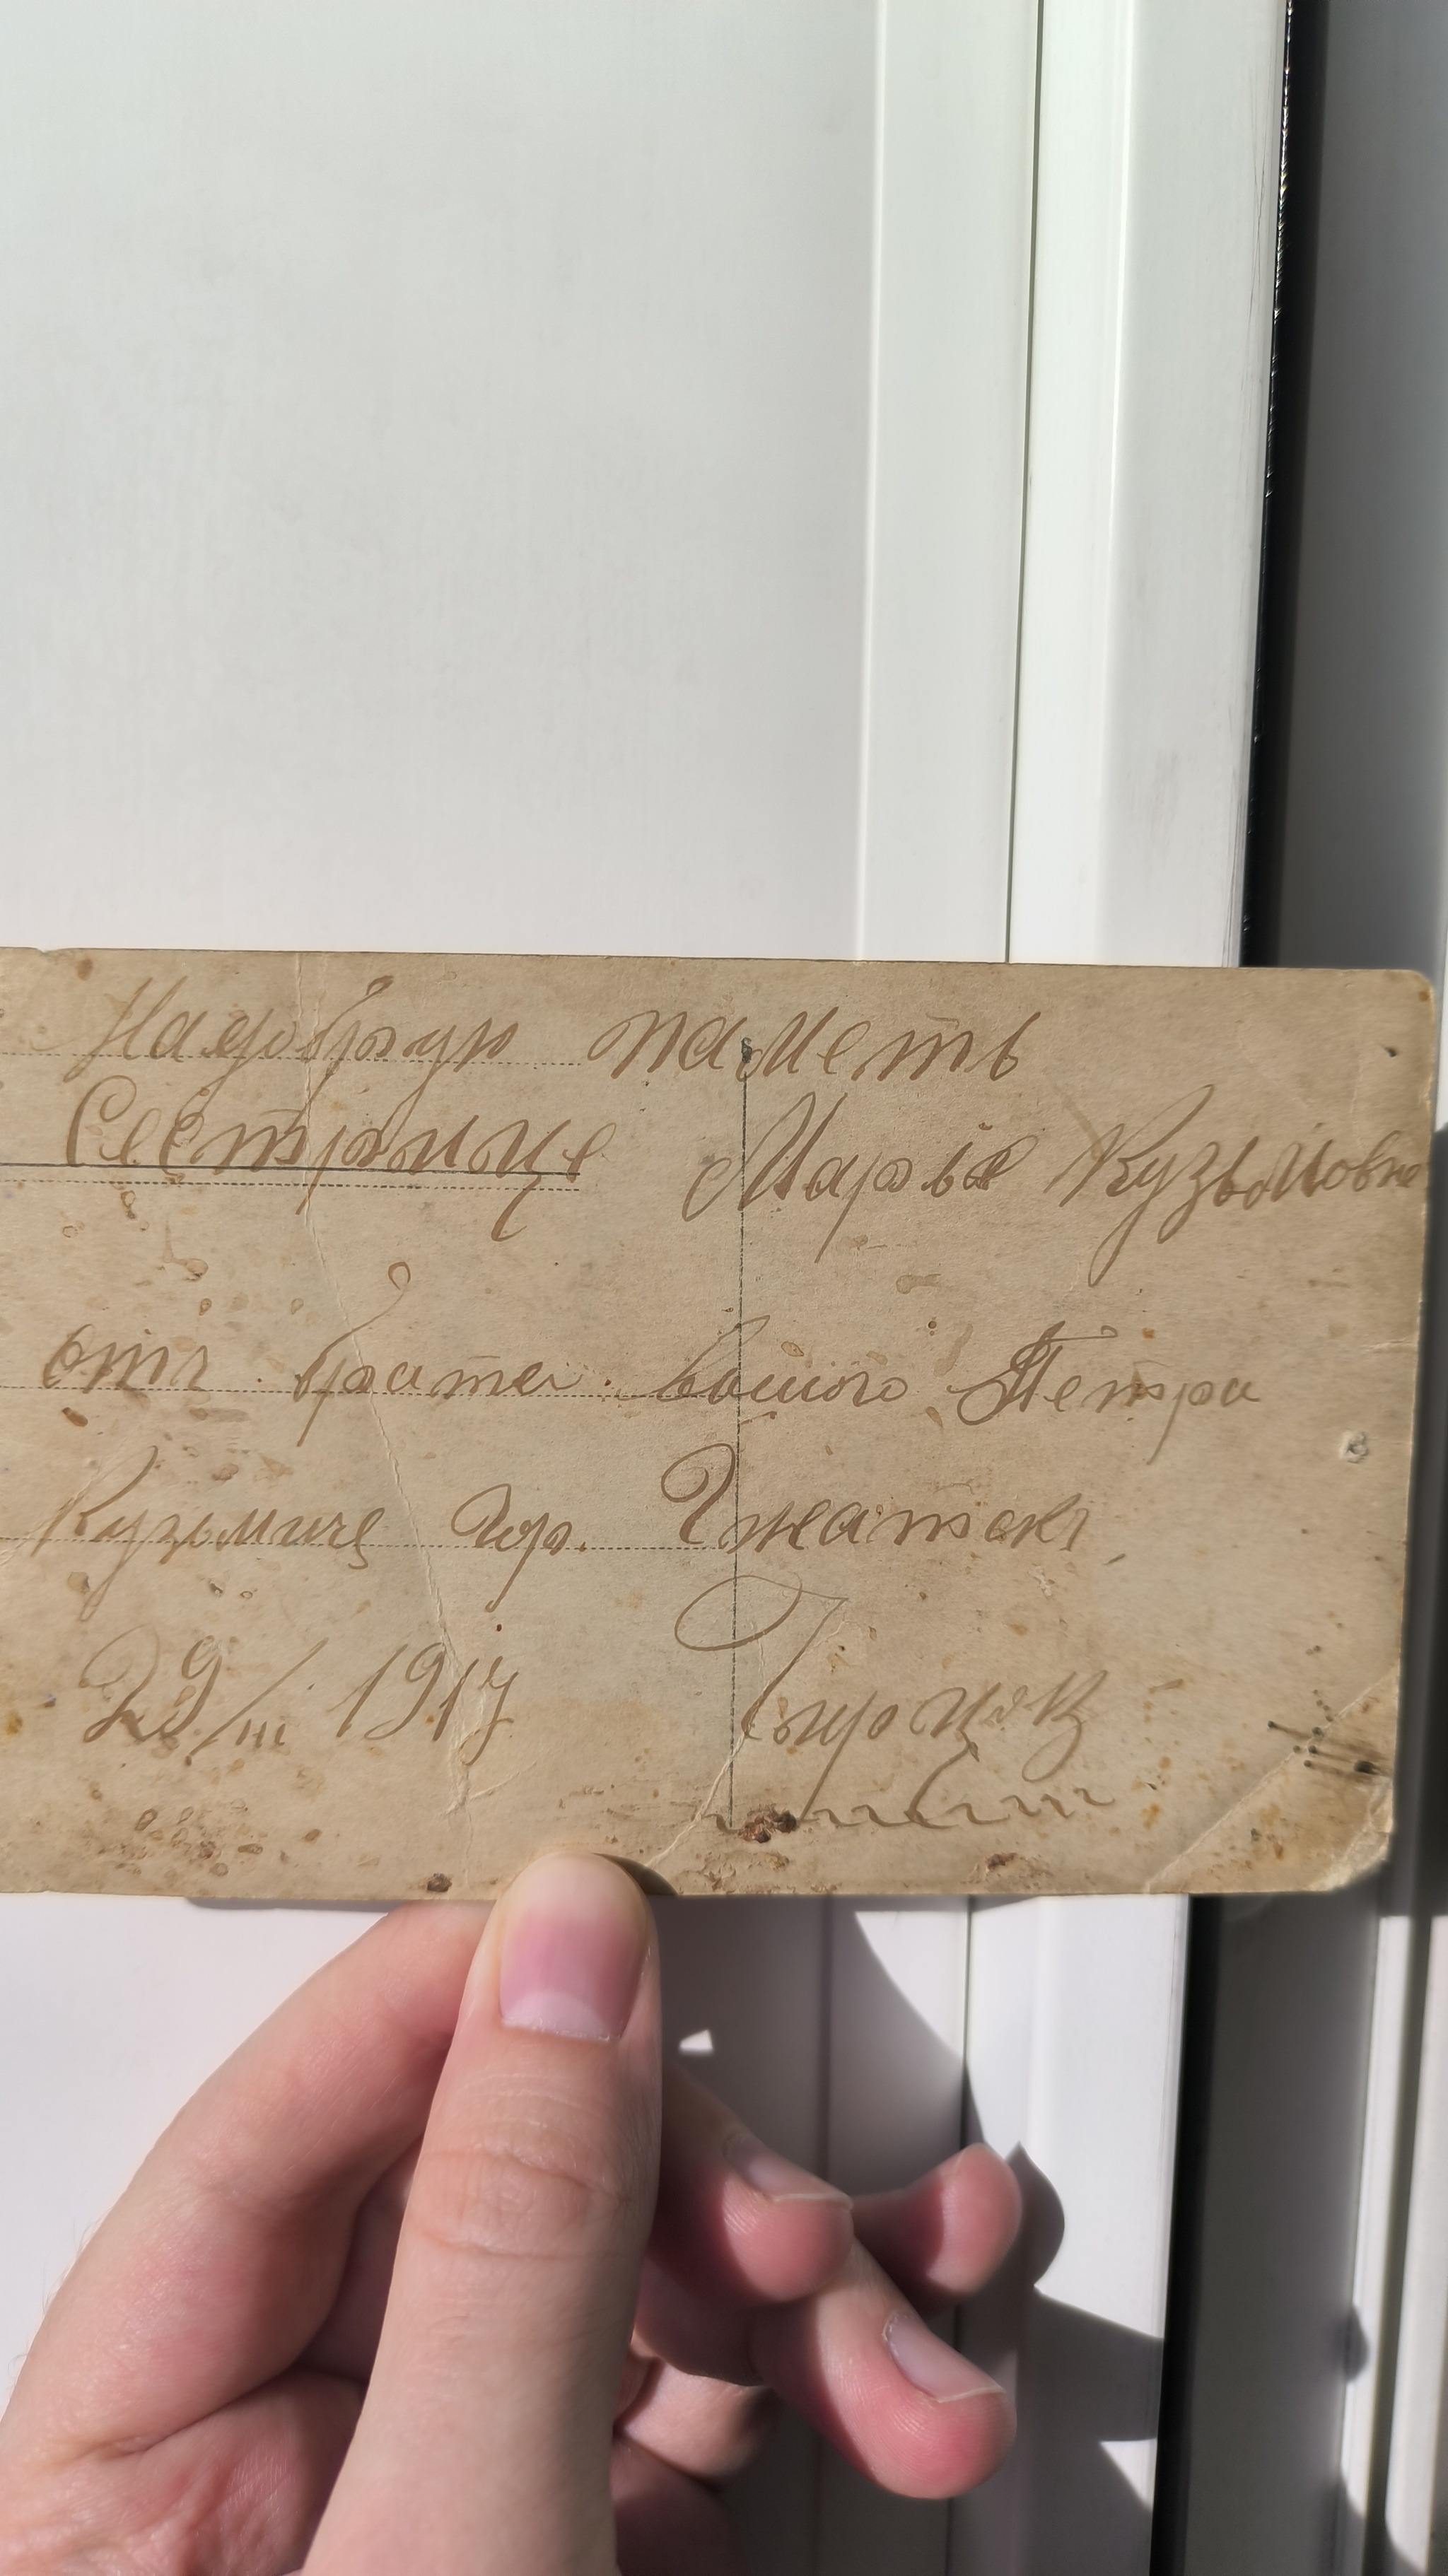 На добрую паметь
Сестрице Марье Кузьмовне
отъ брата вашого Петра
Кузьмича гор. Гжатскъ,
29/III 1917